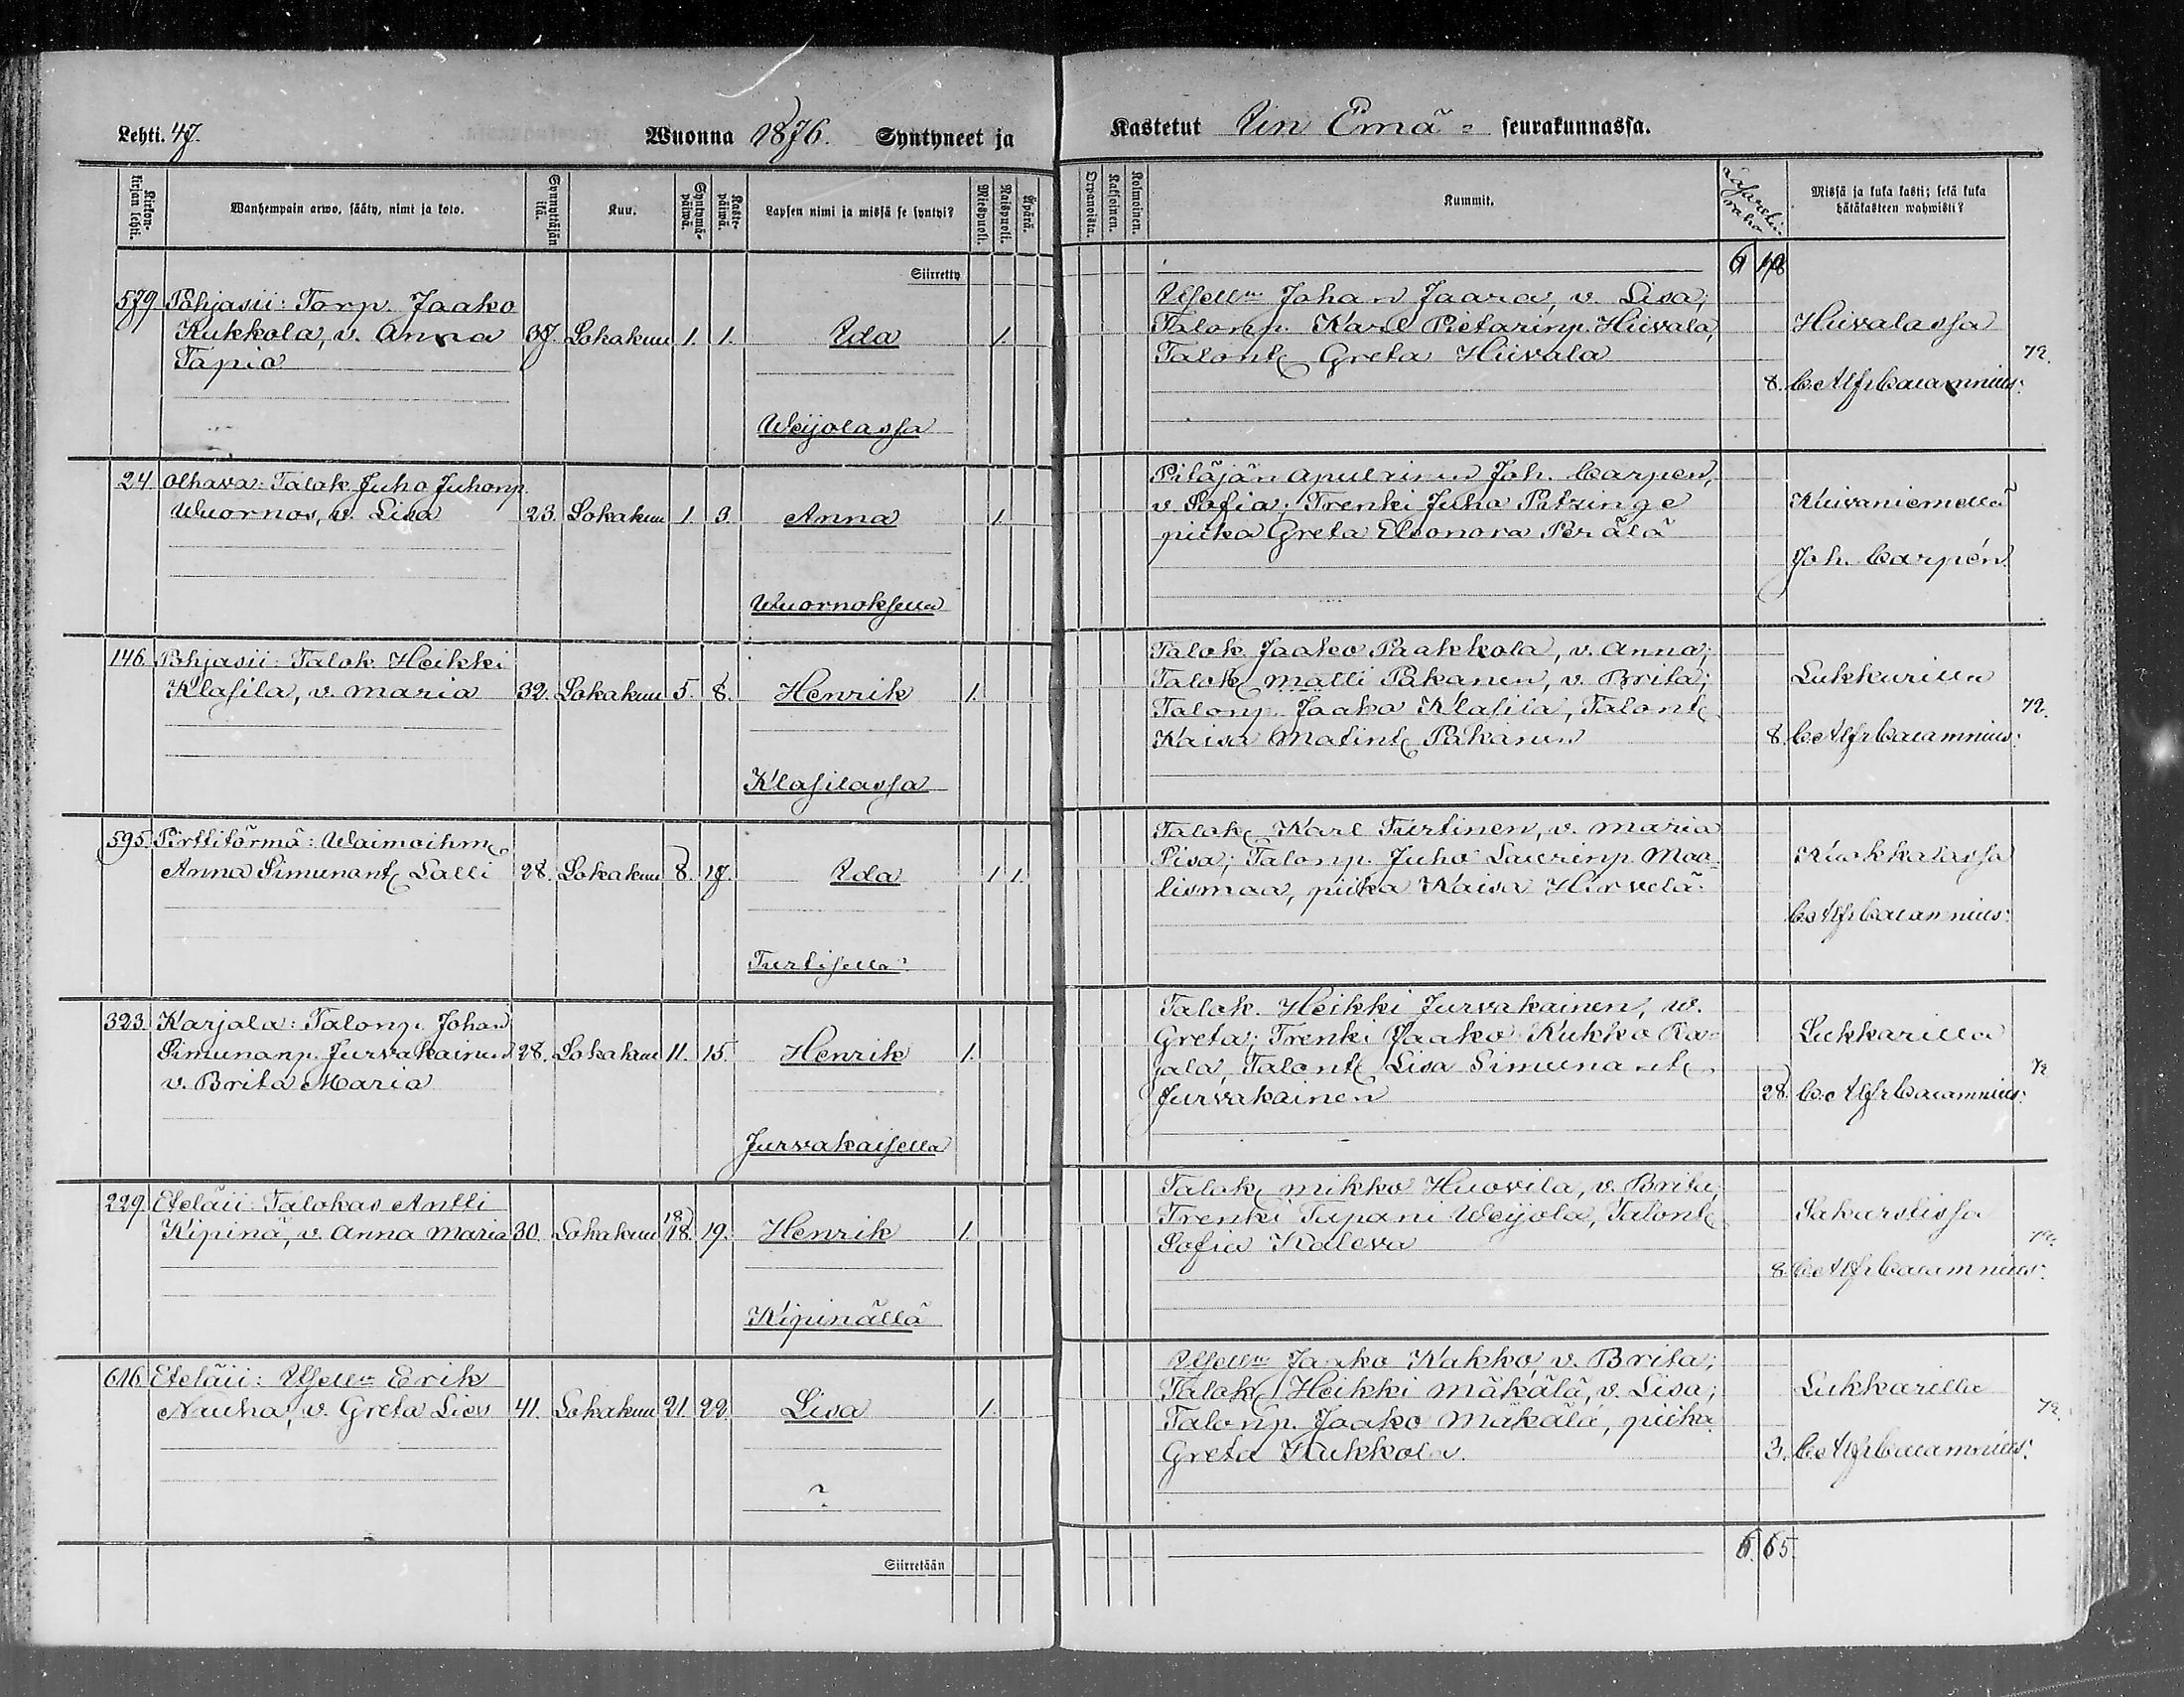 Lehti. 47. Wuonna 1876. Syntyneet ja
Kastetut Iin Emä- seurakunnassa.
Kirkonkirjan lehti.
Wanhempain arwo, sääty, nimi ja koto.
Synnyttäjän ikä.
Kuu.
Syntymäpäiwä.
Kastepäiwä.
Lapsen nimi ja missä se syntyi?
Miespuoli.
Naispuoli.
Äpärä.
Kaksoinen.
Kolmoinen.
Kummit.
Missä ja kuka kasti; sekä kuka
hätäkasteen wahwisti?
Siirretty
579 Pohjasii: Torp. Jaako
Kukkola, v. Anna 37. Lokakuu 1. 1. Ida 1.
Tapio
Weijolassa
Itsell:n Johan Jaara, v. Lisa;
Talonp. Karl Pietarinp. Hiivala,
Talont. Greta Hiivala
Hiivalassa
72.
8. C. Alfr Calamnius.
24 Olhava: Talok. Juho Juhonp.
Wuornos, v. Lisa 23. Lokakuu 1. 3. Anna 1.
Wuornoksella
Pitäjän apulainen Joh. Carpen,
v. Sofia; Trenki Juho
piika Greta Eleonora Perälä
Kuivaniemellä
Joh. Carpén
146 Pohjasii: Talok. Heikki
Klasila, v. Maria 32. Lokakuu 5. 8. Henrik 1.
Klasilassa
Talok. Jaako Paakkola, v. Anna;
Talok. Matti Pakanen, v. Brita;
Talonp. Jaako Klasila, Talont.
Kaisa Matint. Pakanen
Lukkarilla
72.
8. C. Alfr Calamnius.
595 Pirttitörmä: Waimoihm.
Anna Simunant. Lalli 28. Lokakuu 8. 17. Ida 1 1.
Turtisella
Talok. Karl Turtinen, v. Maria
Lisa; Talonp. Juho Laurinp. Maa-
lismaa, piika Kaisa Hirvelä.
C. Alfr Calamnius.
323. Karjala: Talonp. Johan
Simunanp. Jurvakainen 28. Lokakuu 11. 15. Henrik 1.
v. Brita Maria
Jurvakaisella
Talok. Heikki Jurvakainen, w.
Greta; Trenki Jaako Kukko Ka-
jala, Talont. Lisa Simunant.
Jurvakainen
Lukkarilla
72
28. C. Alfr Calamnius.
229. Eteläii: Talokas Antti
18
Kipinä, v. Anna Maria 30. Lokakuu 18. 19. Henrik 1.
Kipinällä
Talok. Mikko Huovila, v. Brita;
Trenki Tapani Weijola, Talont.
Sofia Kaleva
Pakarstissa
72.
8. C. Alfr Calamnius.
616 Eteläii: Itsell:n Erik
Nauha, v. Greta Lisa 41. Lokakuu 21. 22. Lisa 1.
?
Itsell:n Jaako Kakko v. Brita;
Talok. Heikki Mäkälä, v. Lisa;
Talonp. Jaako Mäkälä, piika
Greta Kukkola.
Lukkarilla
72.
3. C. Alfr Calamnius.
Siirretään
6. 65.